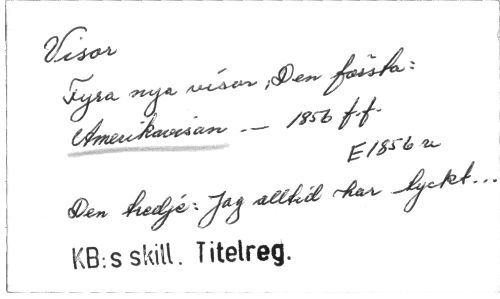 Visor
Fyra nya visor, Den första:
Amerikavisan. — 1856 f.f.
E1856 u
Den tredje: Jag alltid har tyckt...
KB:s skill. Titelreg.